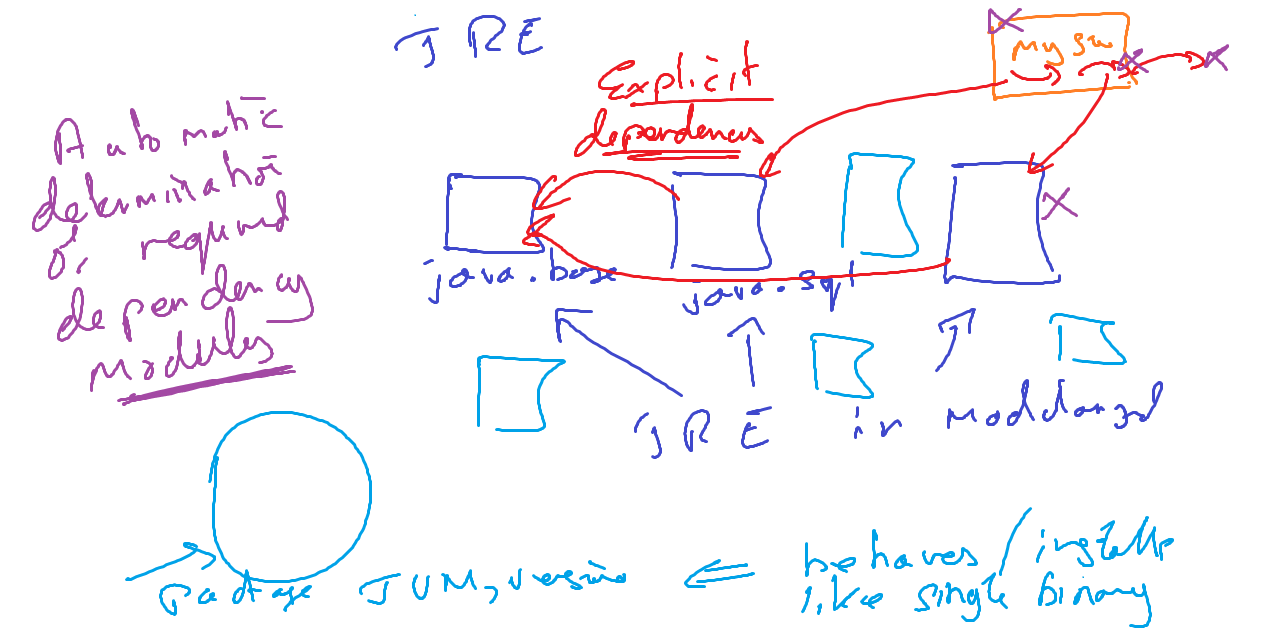 JRE
My sw
Explicit
dependencies
Automatic
determination
of required
dependency
modules
java.base
java.sql
JRE in Modularized
package JVM, version
behaves / installs
like single binary